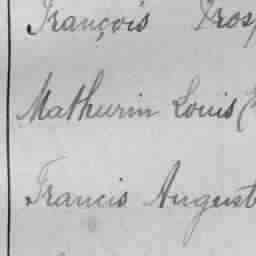 François Pros
Mathurin Louis (
Francis August